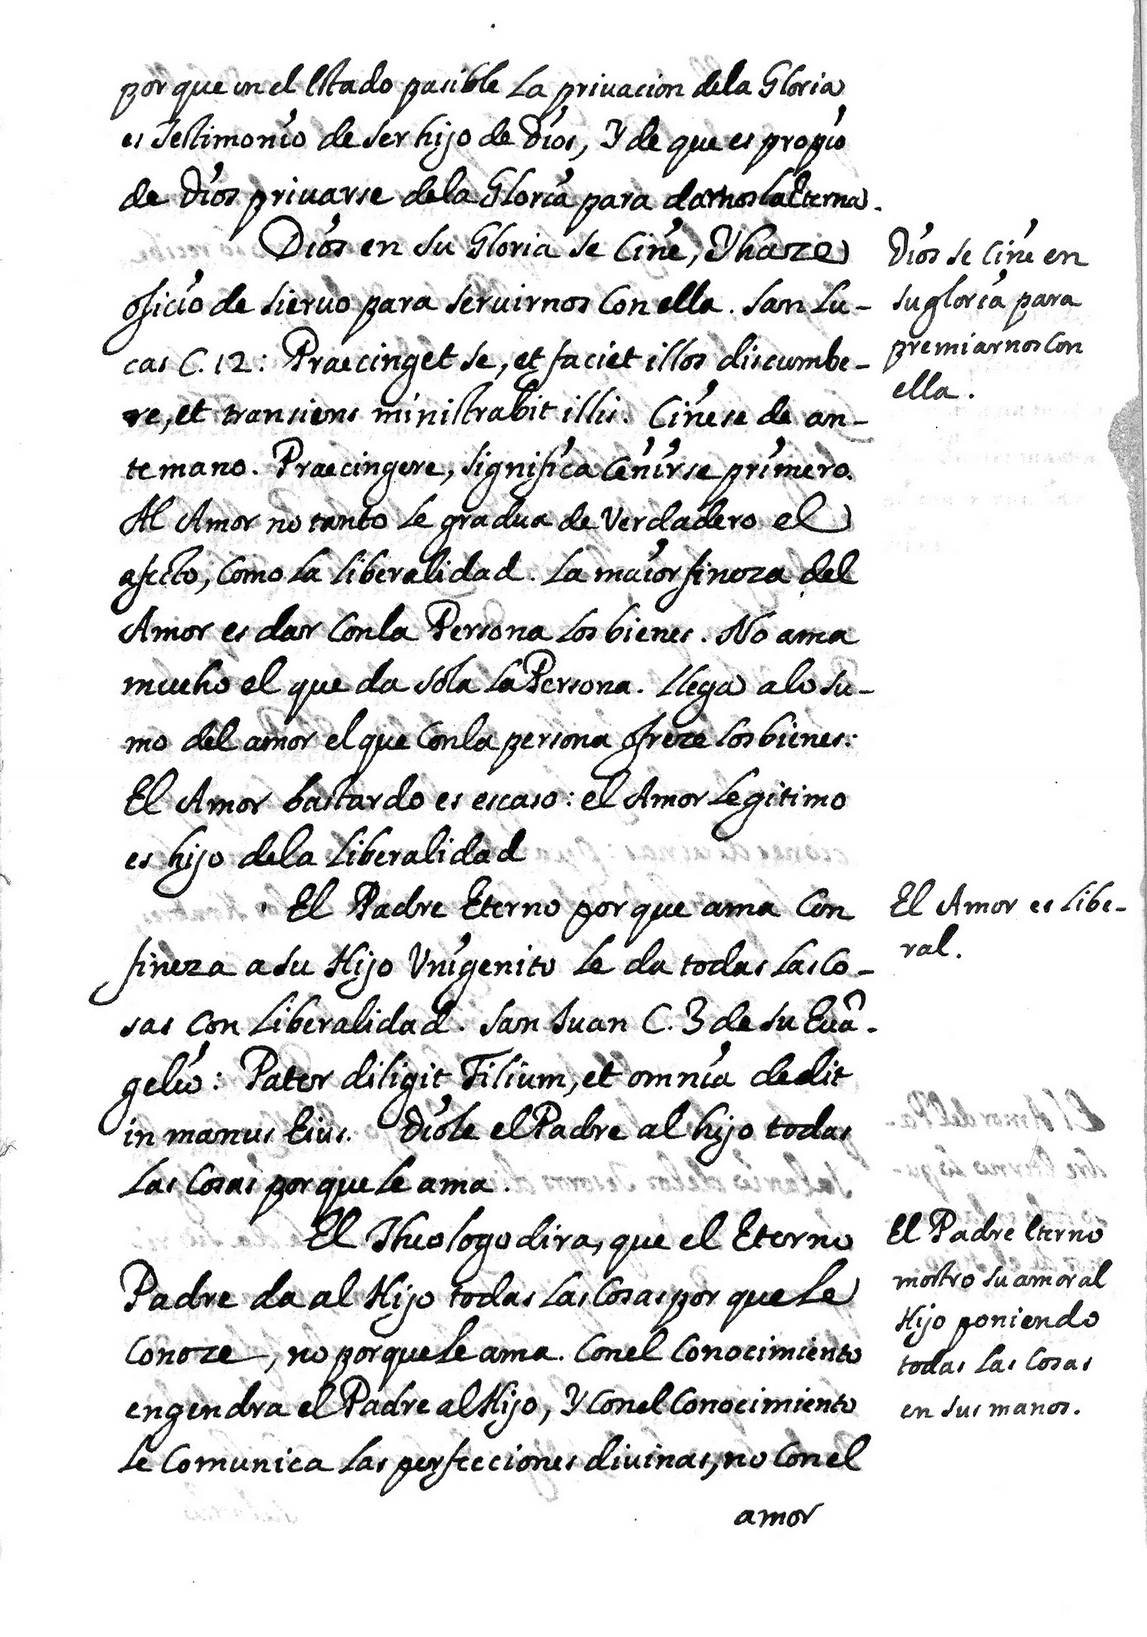 por que en el estado pasible la priuacion dela Gloria
es testimonio de ser hijo de Dios, Y de que es propio
de Dios priuarse dela Gloria para darnos la Eterna.
Dios en su Gloria se ciñe, Y haze
oficio de sieruo para seruirnos con ella. San Lu-
cas C. 12: Praecinget se, et faciet illos discumbe-
re, et transiens ministrabit illis. Ciñese de an-
te mano. Praecingere, significa ceñirse primero.
Al Amor no tanto le gradua de Verdadero el
afecto, como la liberalidad. La maior fineza del
Amor es dar con la Persona los bienes. No ama
mucho el que da sola la Persona. llega alo su-
mo del amor el que con la persona ofreze los bienes:
El Amor bastardo es escaso: el Amor legitimo
es hijo dela liberalidad
Dios se ciñe en
su gloria para
premiarnos con
ella.
El Padre Eterno por que ama con
fineza a su Hijo Vnigenito le da todas las co-
sas con liberalidad. San Juan C. 3 de su Euã-
gelio: Pater diligit Filium, et omnia dedit
in manus Eius. Diole el Padre al hijo todas
las cosas por que le ama.
El Amor es libe-
ral.
El Theologo dira, que el Eterno
Padre da al Hijo todas las cosas por que le
conoze, no por que le ama. Con el conocimiento
engendra el Padre al Hijo, Y con el conocimiento
le comunica las perfecciones diuinas, no con el
amor
El Padre Eterno
mostro su amor al
Hijo poniendo
todas las cosas
en sus manos.